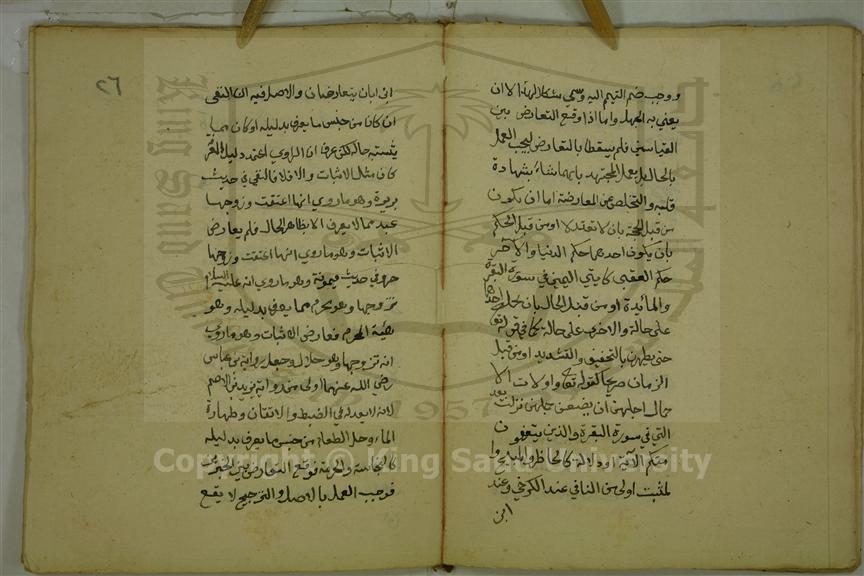 ووجب ضم التيمم اليه وسمي مشكلا لهذا لا ان
يعني به الجهل واما اذا وقع التعارض بين
القياسين فلم يسقطا بالتعارض ليجب العمل
بالحال بل يعمل المجتهد بايهما شاء بشهادة
قلبه والتخلص عن المعارضة اما ان يكون
من قبل الحجة بان لا تعتدلا او من قبل الحكم
بان يكون احدهما حكم الدنيا والاخر
حكم العقبى كايتي اليمين في سورة البقرة
والمائدة او من قبل الحال بان يحمل احدهما
على حالة والاخرى على حالة كما في قوله تع
حتى يطهرن بالتخفيف والتشديد او من قبل
الزمان صريحا كقوله تع واولات الا
حمال اجلهن ان يضعن حملهن نزلت بعد
التي في سورة البقرة والذين يتوفون
منكم الآية او دلالة كالحاظر والمبيح وا
لمثبت اولى من النافي عند الكرخي وعند
ابن
٢٦
ابن ابان يتعارضان والاصل فيه ان النفي
ان كان من جنس ما يعرف بدليله او كان مما
يشتبه حاله لكن عرف ان الراوي اعتمد دليل المعرفة
كان مثل الاثبات والا فلا فالنفي في حديث
بريرة وهو ما روي انها اعتقت وزوجها
عبد مما لا يعرف الا بظاهر الحال فلم يعارض
الاثبات وهو ما روي انها اعتقت وزوجها
حر وفي حديث ميمونة وهو ما روي انه عليه السلام
تزوجها وهو محرم مما يعرف بدليله وهو
هيئة المحرم فعارض الاثبات وهو ما روي
انه تزوجها وهو حلال وجعل رواية بن عباس
رضي الله عنهما اولى من رواية يزيد بن الاصم
لانه لا يعدله في الضبط والاتقان وطهارة
الماء وحل الطعام من جنس ما يعرف بدليله
كالنجاسة والحرمة فوقع التعارض بين الخبرين
فوجب العمل بالاصل والترجيح لا يقع
King Saud University
1957
Copyright © King Saud University